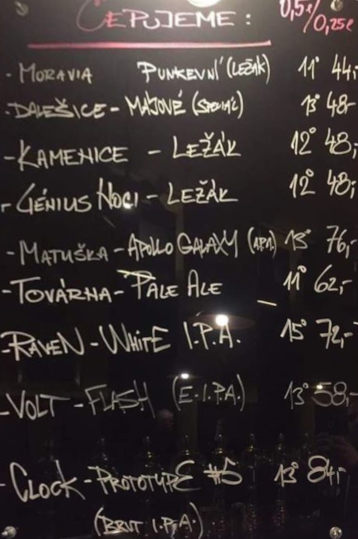 ČEPUJEME: 0,5ℓ/0,25ℓ
- MORAVIA PUNKEVNÍ (LEŽÁK) 11° 44,-
- DALEŠICE - MAJOVÉ (SPECIÁL) 13° 48,-
- KAMENICE - LEŽÁK 12° 48,-
- GÉNIUS NOCI - LEŽÁK 12° 48,-
- MATUŠKA - APOLLO GALAXY (APA) 13° 76,-
- TOVÁRNA - PALE ALE 11° 62,-
- RAVEN - WHITE I.P.A. 15° 72,-
- VOLT - FLASH (E.I.P.A.) 13° 58,-
- CLOCK - PROTOTYPE #5 13° 84,-
(BRUT I.P.A.)